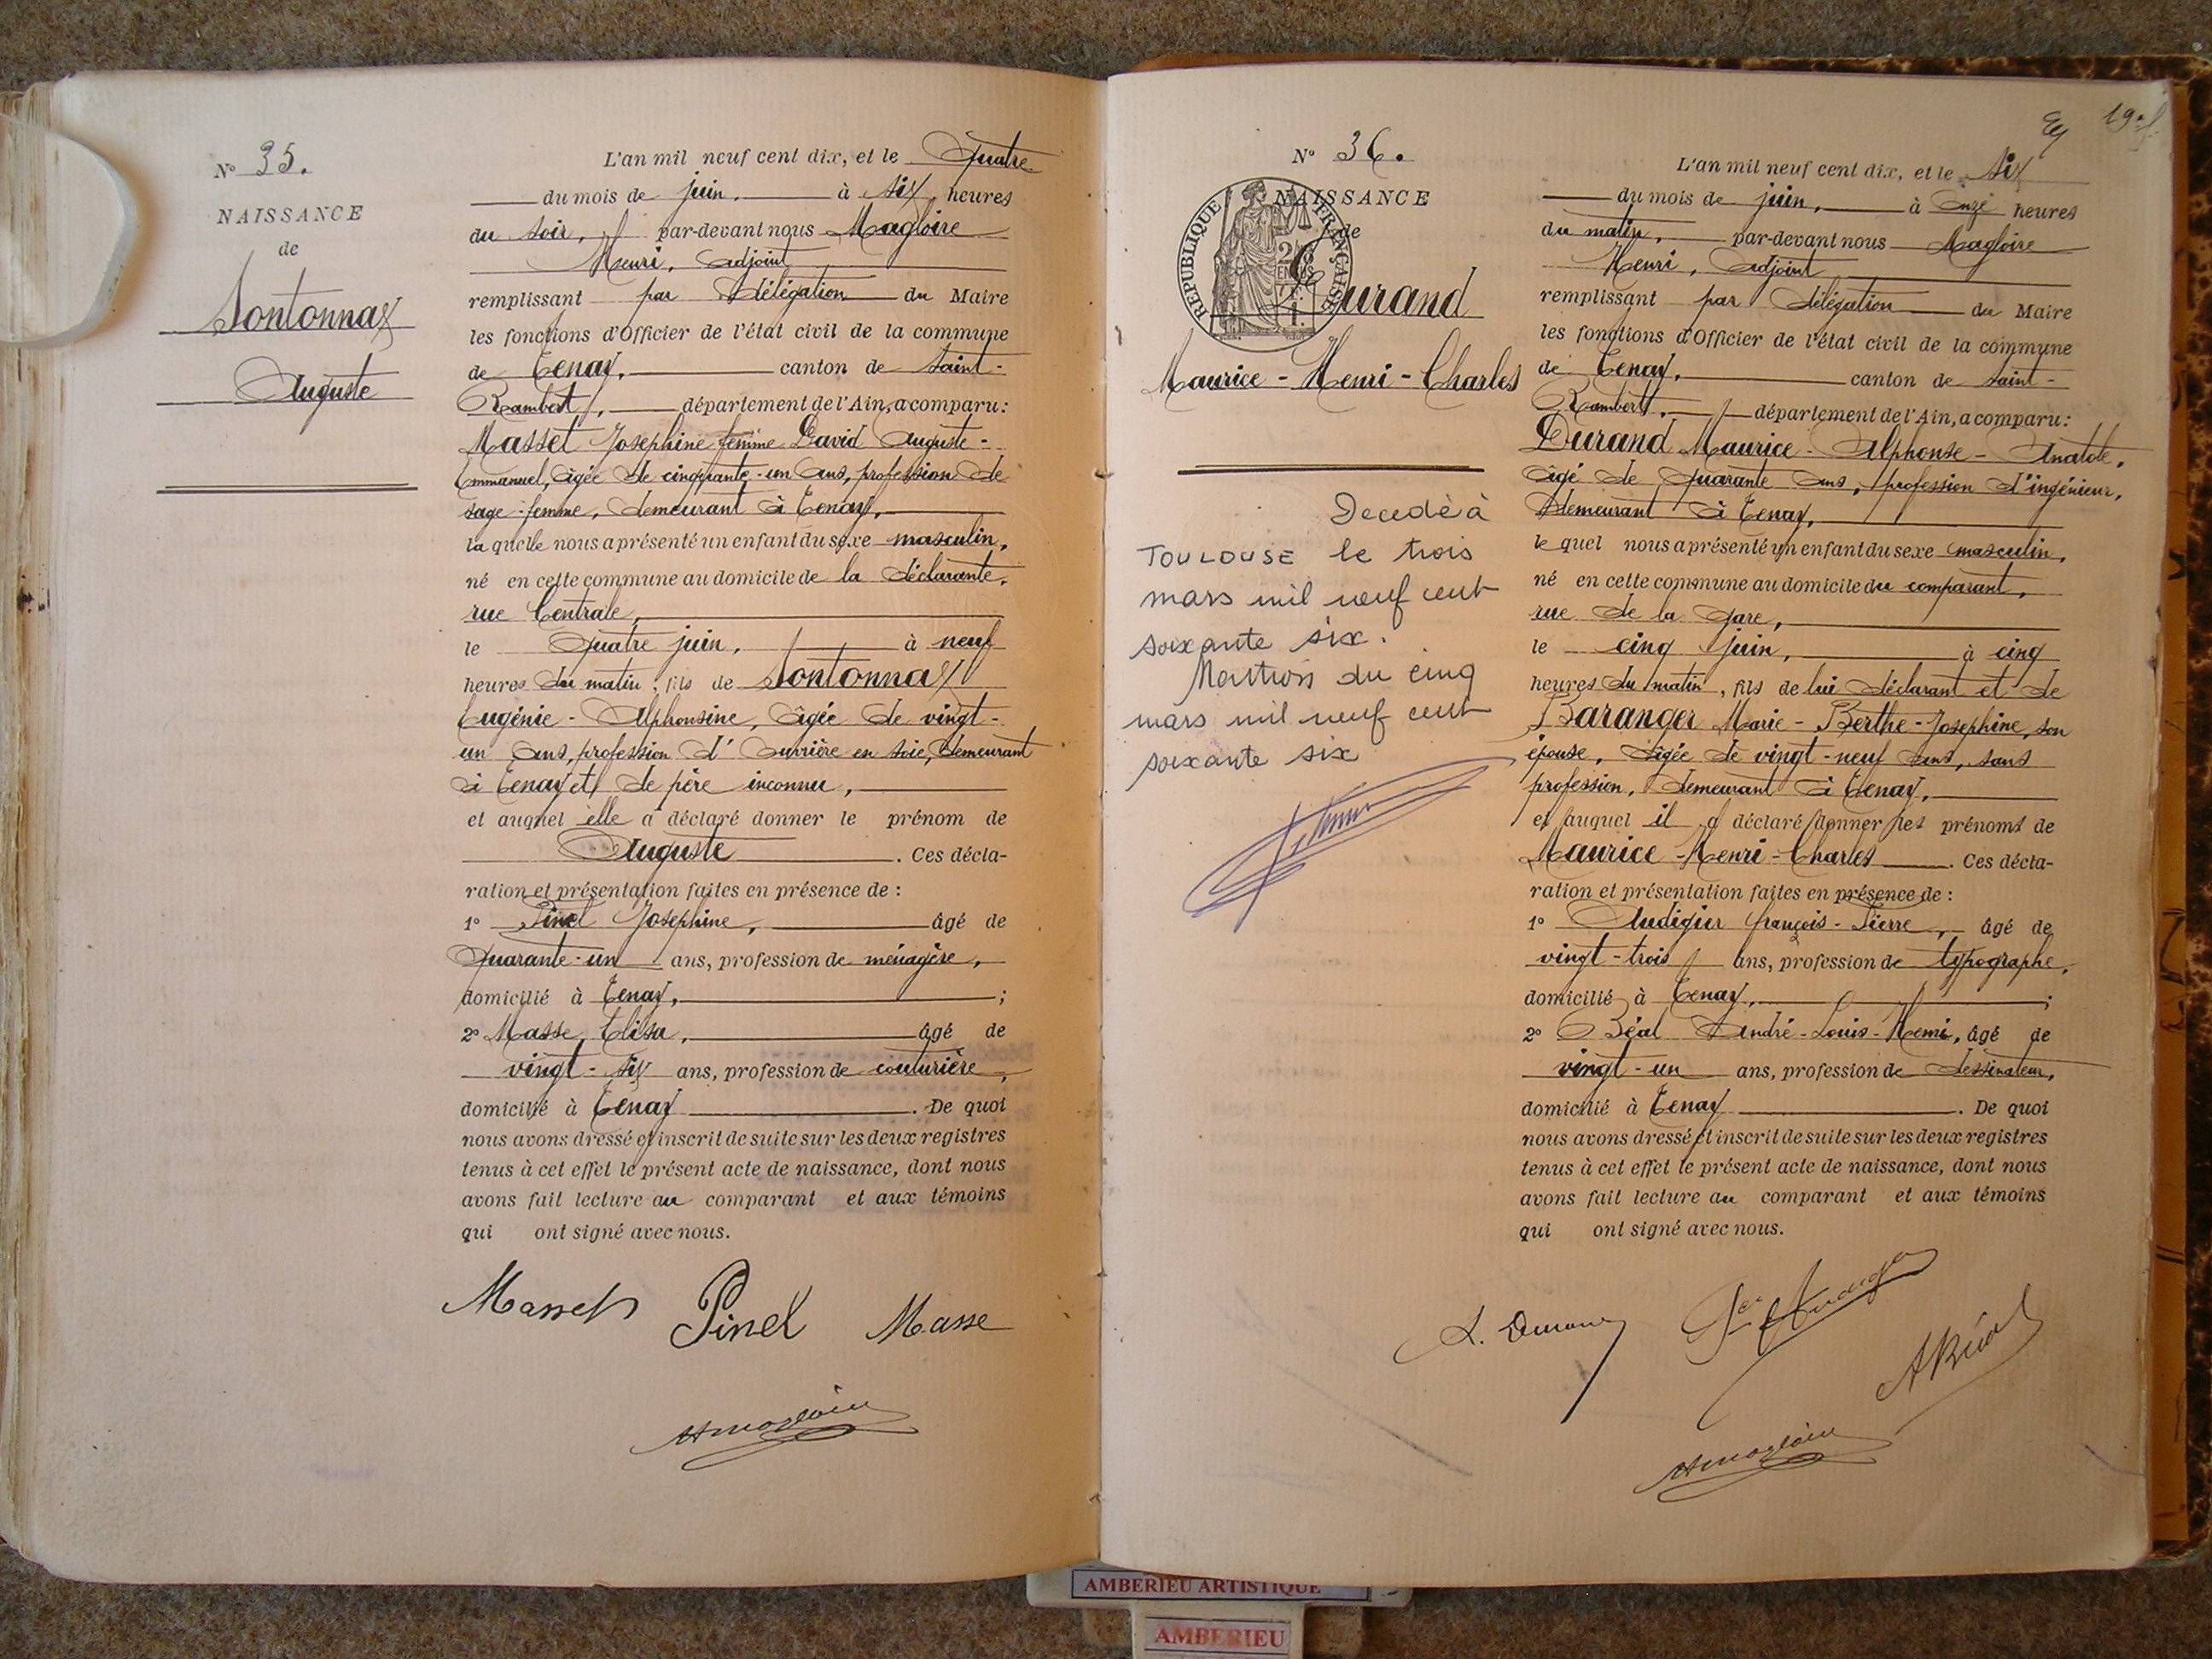 Nº 35.
NAISSANCE
de
Sontonnax
Auguste
L'an mil neuf cent dix, et le Quatre
du mois de juin. à six heures
du soir, par-devant nous Magloire
Henri, adjoint
remplissant par délégation du Maire
les fonctions d'Officier de l'état civil de la commune
de Tenay, canton de Saint-
Rambert, département de l'Ain, a comparu :
Masset Josephine femme David Auguste-
Emmanuel, âgée de cinquante-un ans, profession de
sage-femme, demeurant à Tenay,
la quelle nous a présenté un enfant du sexe masculin,
né en cette commune au domicile de la déclarante,
rue Centrale,
le Quatre juin, à neuf
heures du matin, fils de Sontonnax
Eugénie-Alphonsine, âgée de vingt-
un ans, profession d'ouvrière en soie, demeurant
à Tenay et de père inconnu,
et auquel elle a déclaré donner le prénom de
Auguste. Ces décla-
ration et présentation faites en présence de :
1º Pinel Josephine, âgé de
Quarante-un ans, profession de ménagère,
domicilié à Tenay, ;
2º Masse Elisa, âgé de
vingt-six ans, profession de couturière,
domicilié à Tenay. De quoi
nous avons dressé et inscrit de suite sur les deux registres
tenus à cet effet le présent acte de naissance, dont nous
avons fait lecture au comparant et aux témoins
qui ont signé avec nous.
Masset Pinel Masse
HMagloire
19
Nº 36.
NAISSANCE
de
REPUBLIQUE FRANÇAISE
Durand
Maurice-Henri-Charles
Decedé à
TOULOUSE le trois
mars mil neuf cent
soixante six.
Mention du cinq
mars mil neuf cent
soixante six
L'an mil neuf cent dix, et le six
du mois de juin, à onze heures
du matin, par-devant nous Magloire
Henri, adjoint
remplissant par délégation du Maire
les fonctions d'Officier de l'état civil de la commune
de Tenay, canton de Saint-
Rambert, département de l'Ain, a comparu :
Durand Maurice-Alphonse-Anatole,
âgé de quarante ans, profession d'ingénieur,
demeurant à Tenay,
le quel nous a présenté un enfant du sexe masculin,
né en cette commune au domicile du comparant,
rue de la Gare,
le cinq juin, à cinq
heures du matin, fils de lui déclarant et de
Baranger Marie-Berthe-Josephine, son
épouse, âgée de vingt-neuf ans, sans
profession, demeurant à Tenay,
et auquel il a déclaré donner les prénoms de
Maurice-Henri-Charles. Ces décla-
ration et présentation faites en présence de :
1º Audigier françois-Pierre, âgé de
vingt-trois ans, profession de typographe,
domicilié à Tenay, ;
2º Béal André-Louis-Henri, âgé de
vingt-un ans, profession de dessinateur,
domicilié à Tenay. De quoi
nous avons dressé et inscrit de suite sur les deux registres
tenus à cet effet le présent acte de naissance, dont nous
avons fait lecture au comparant et aux témoins
qui ont signé avec nous.
Durand
ABéal
HMagloire
AMBERIEU ARTISTIQUE
AMBERIEU